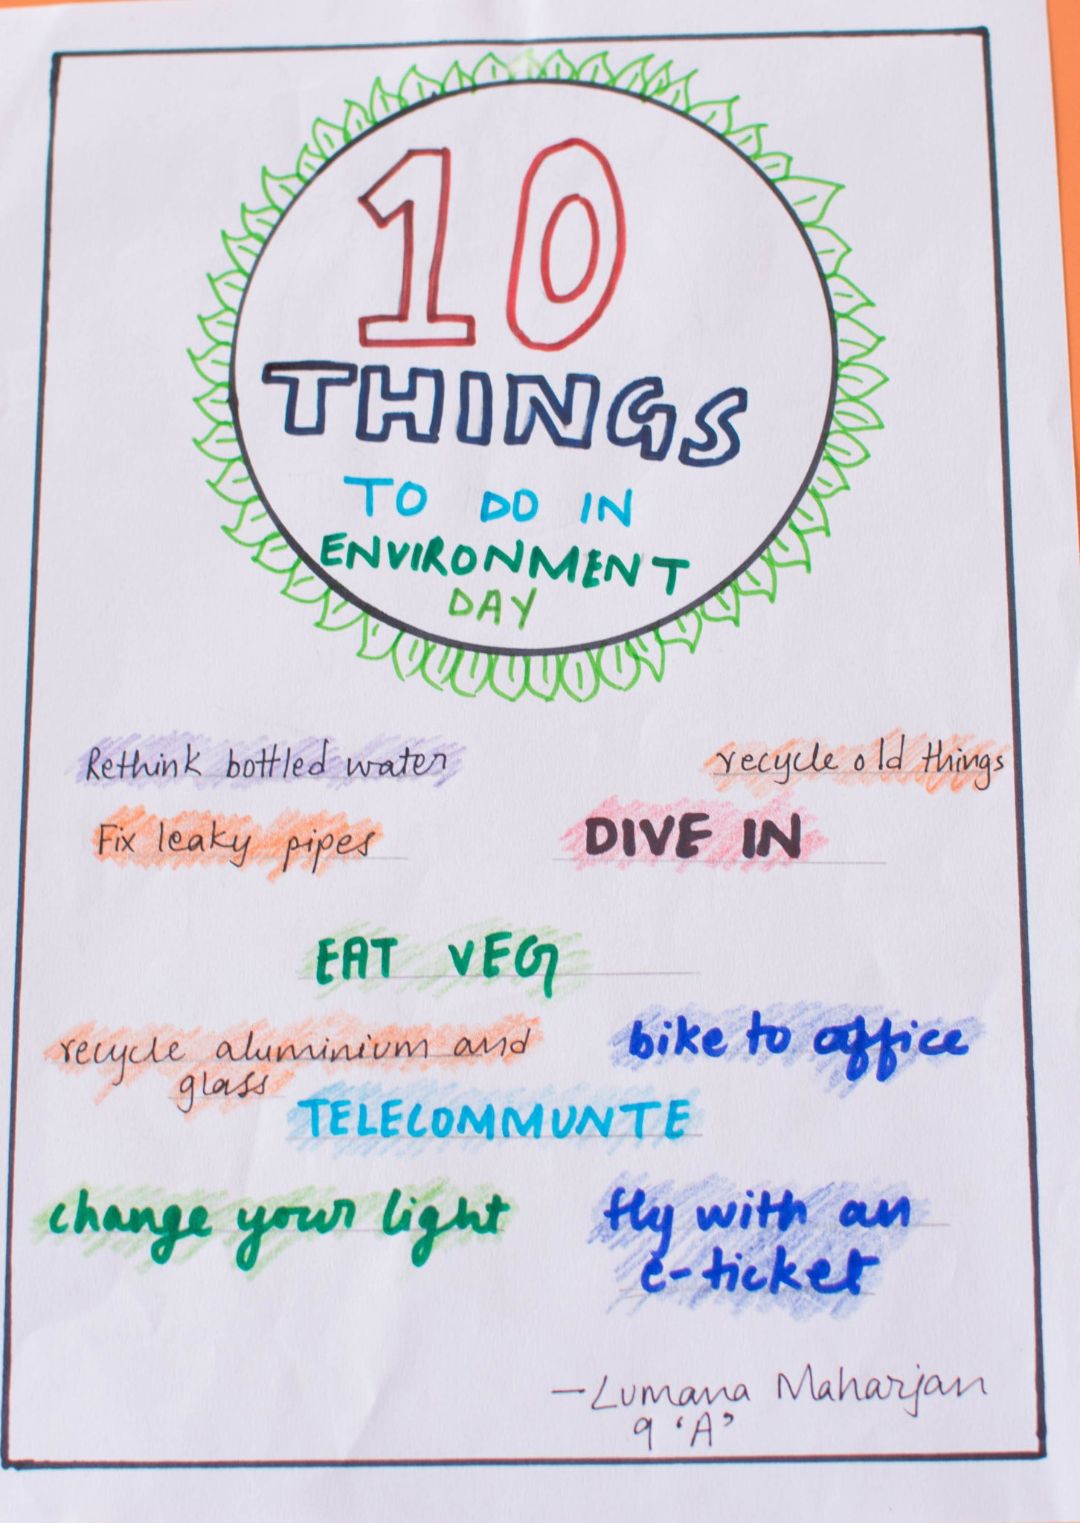 10
THINGS
TO DO IN
ENVIRONMENT
DAY
Rethink bottled water
recycle old things
Fix leaky pipes
DIVE IN
EAT VEG
recycle aluminium and
glass
bike to office
TELECOMMUNTE
change your light
fly with an
e-ticket
-Lumana Maharjan
9 'A'